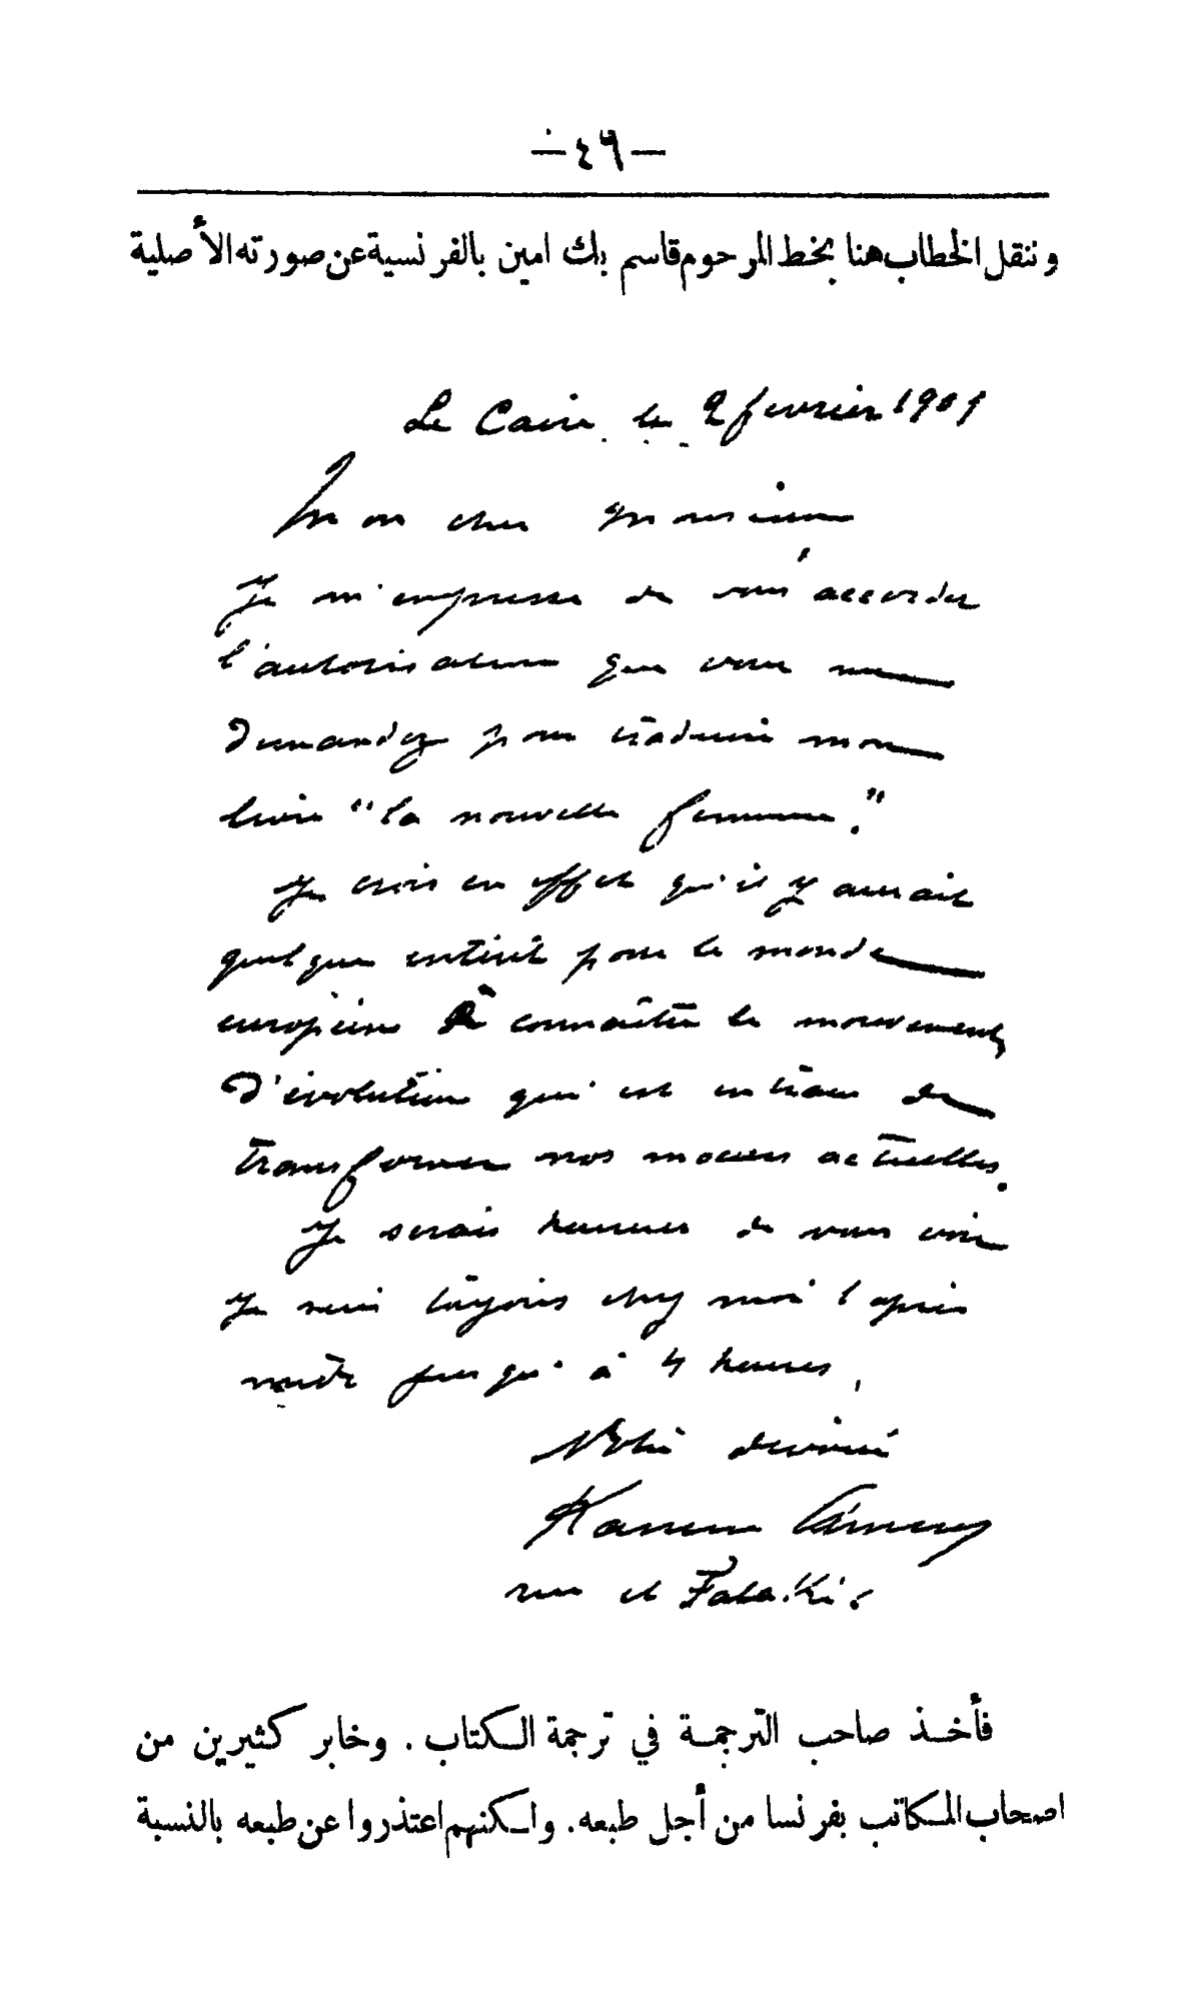 — ٤٦ —
وننقل الخطاب هنا بخط المرحوم قاسم بك امين بالفرنسية عن صورته الأصلية
Le Caire le 2 fevrier 1901
Mon cher monsieur
Je m'empresse de vous accorder
l'autorisation que vous me
demandez pour traduire mon
livre "la nouvelle femme."
Je crois en effet qu'il y aurait
quelque intérêt pour le monde
européen à connaître le mouvement
d'évolution qui est en train de
transformer nos moeurs actuelles.
Je serais heureux de vous voir
Je suis toujours chez moi l'après
midi jusqu'à 4 heures,
Votre dévoué
Kassem Amin
rue el Falaki.
فأخذ صاحب الترجمة في ترجمة الكتاب . وخابر كثيرين من
اصحاب المكاتب بفرنسا من أجل طبعه. ولكنهم اعتذروا عن طبعه بالنسبة